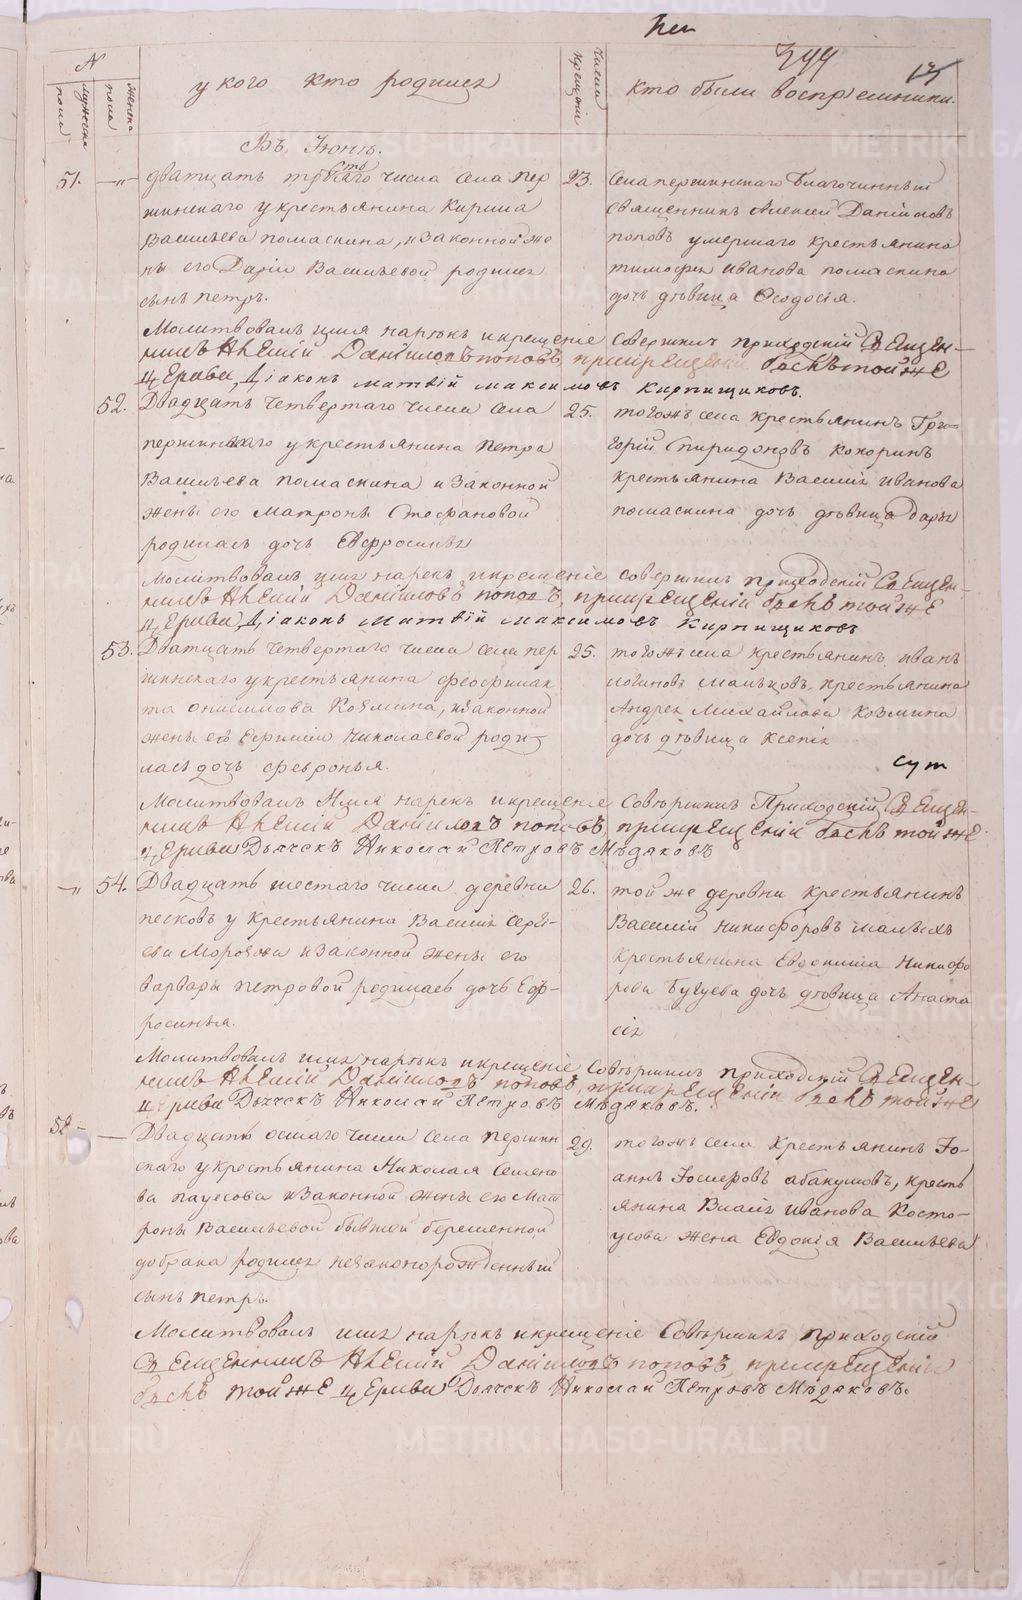 399
13
N
мужеска пола
женска пола
у кого кто родился
числа крещенія
кто были воспріемники.
Въ Іюнѣ.
51. —„— дватцать третьяго числа села пер
шинскаго у крестьянина Кирила
Васильева помаскина, и законной же
ны его Даріи Васильевой родился
сынъ петръ.
23. села першинскаго Благочинный
Священникъ Алексей Даніиловъ
поповъ умершаго крестьянина
тимофея иванова помаскина
дочь дѣвица Ѳеодосія.
Молитвовалъ имя нарѣкъ и крещеніе совершилъ приходскій Священ-
никъ Алексій Даніиловъ поповъ, при крещеніи былъ той же
церкви Діаконъ матвій максимовъ Кирпищиковъ.
52. Двадцать четвертаго числа села
першинскаго у крестьянина петра
Васильева помаскина и законной
жены его Матроны Стефановой
родилась дочь Евфросинья
25. тогожъ села крестьянинъ Гри-
горій Спиридоновъ кокоринъ
крестьянина Василія иванова
помаскина дочь дѣвица дарья
Молитвовалъ имя нарекъ и крещеніе совершилъ приходскій Священ-
никъ Алексій Даніиловъ поповъ, при крещеніи былъ той же
церкви, Діаконъ матвій максимовъ Кирпищиковъ
53. Дватцать четвертаго числа села пер
шинскаго у крестьянина феофилак
та онисимова Козмина, и законной
жены его Евфиміи Николаевой роди-
лась дочь февронья.
25. тогожъ села крестьянинъ иванъ
логиновъ мальцовъ, крестьянина
Андрея Михайлова Козмина
дочь дѣвица Ксенія
Молитвовалъ Имя нарекъ и крещеніе Совершилъ Приходскій Священ-
никъ Алексій Даніиловъ поповъ, при крещеніи былъ той же
церкви Дьячекъ Николай Петровъ Мѣдяковъ
—„ 54. Двадцать шестаго числа деревни
песковъ у крестьянина Василія Серге-
ева Морозова и законной жены его
варвары петровой родилась дочь Еф-
росинья.
26. той же деревни крестьянинъ
Василій никифоровъ
крестьянина Евдокима Никифо
рова Бугуева дочь дѣвица Анаста
сія
Молитвовалъ имя нарѣкъ и крещеніе Совершилъ приходскій Священ-
никъ Алексій Даніиловъ поповъ, при крещеніи былъ той же
церкви Дьячекъ Николай Петровъ Мѣдяковъ.
52 — — Двадцать осмаго числа села першин
скаго у крестьянина Николая Семено
ва паусова и законной жены его Мат
роны Васильевой бывшей беременной
до брака родился незаконорожденный
сынъ петръ.
29. тогожъ села крестьянинъ Іо-
аннъ абакумовъ, кресть
янина иванова Косто-
усова жена Евдокія Васильева
Молитвовалъ имя нарѣкъ и крещеніе Совершилъ приходскій
Священникъ Алексій Даніиловъ поповъ, при крещеніи
былъ той же церкви Дьячекъ Николай Петровъ Мѣдяковъ.